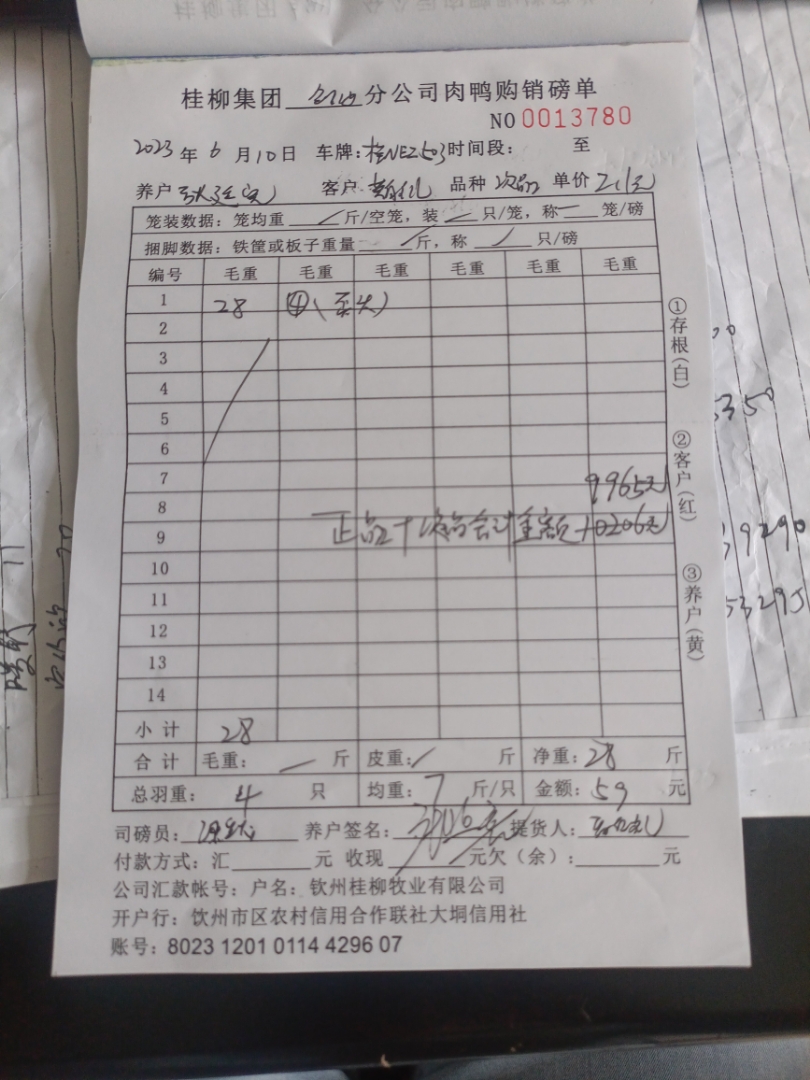 桂柳集团 分公司肉鸭购销磅单
NO 0013780
2023 年 6 月 10 日 车牌:桂NEZ503 时间段: 至
养户 客户 品种 次品 单价 2.1元
笼装数据:笼均重 斤/空笼,装 只/笼,称 笼/磅
捆脚数据:铁筐或板子重量 斤,称 只/磅
编号 毛重 毛重 毛重 毛重 毛重 毛重
1 28 ④
2
3
4
5
6
7
8 9965元
9 正品+次品合计金额10206元
10
11
12
13
14
小计 28
合计 毛重: 斤 皮重: 斤 净重:28 斤
总羽重: 4 只 均重: 7 斤/只 金额:59 元
司磅员: 养户签名: 提货人:
付款方式:汇 元 收现 元欠(余): 元
公司汇款帐号:户名:钦州桂柳牧业有限公司
开户行:钦州市区农村信用合作联社大垌信用社
账号:8023 1201 0114 4296 07
①存根(白)
②客户(红)
③养户(黄)